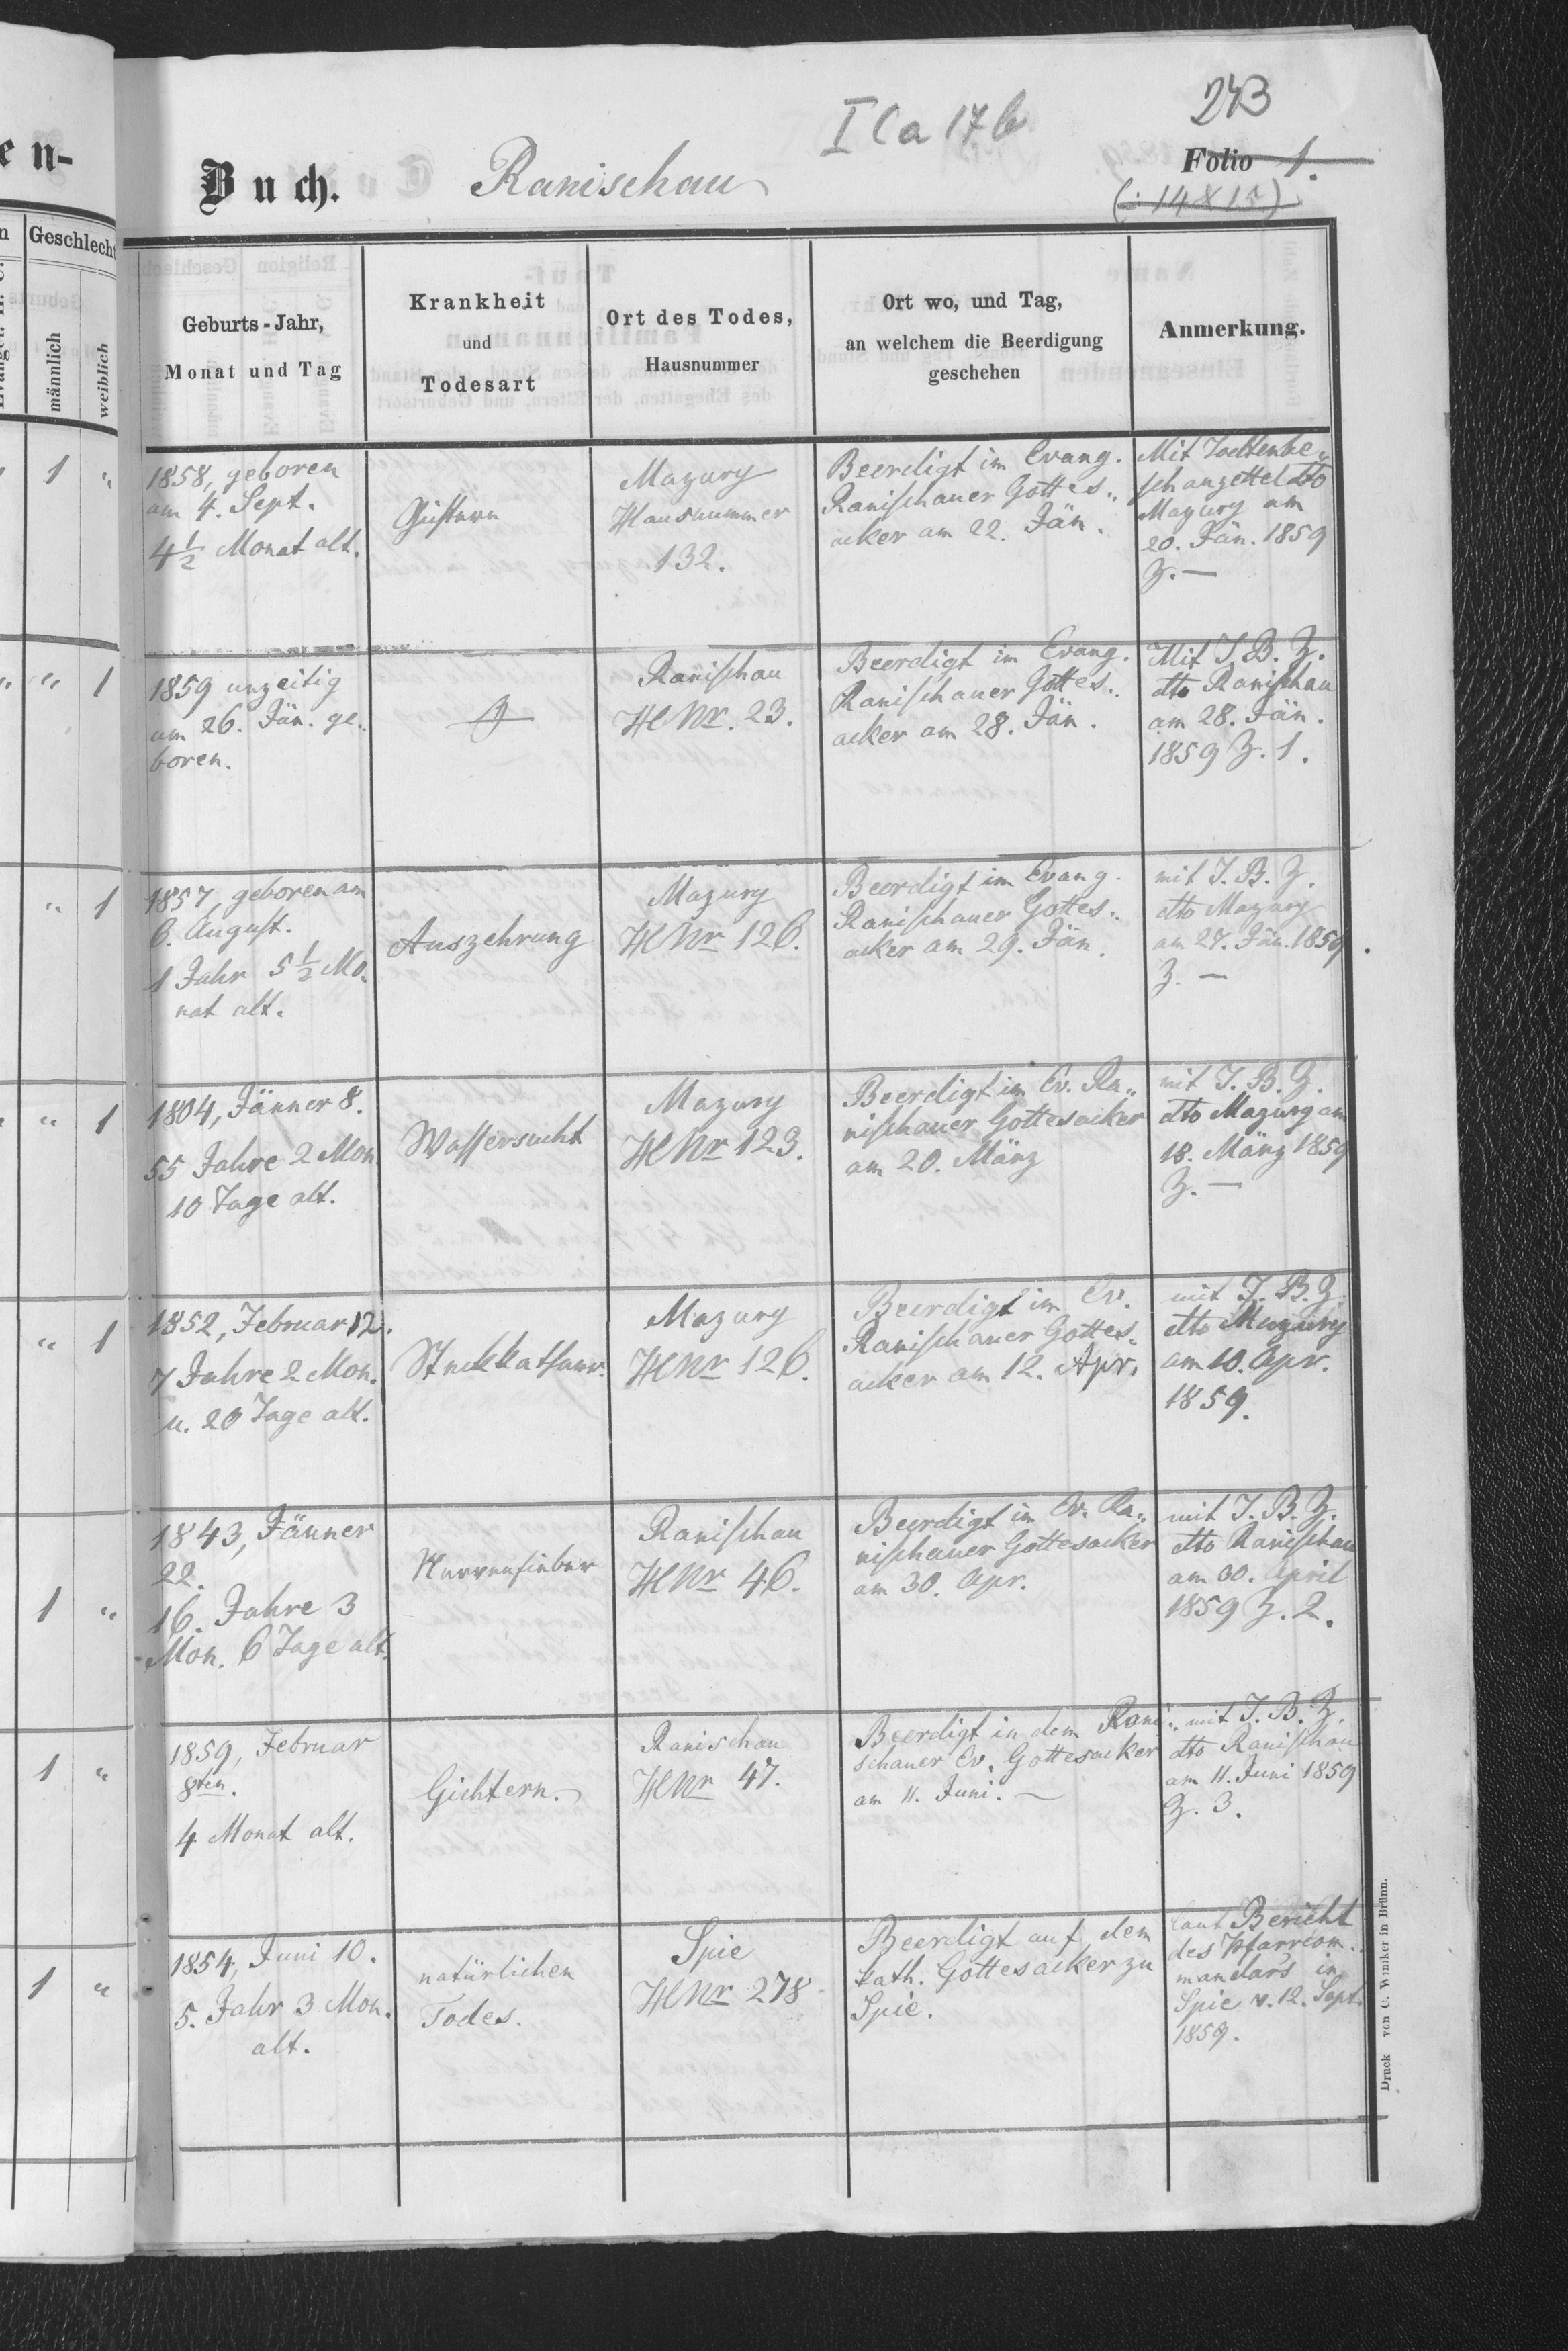 I C a 17 b
243
en-
Buch. Ranischau
Folio 1.
(: 14 & 15)
Geschlecht
männlich
weiblich
Geburts-Jahr,
Monat und Tag
Krankheit
und
Todesart
Ort des Todes,
Hausnummer
Ort wo, und Tag,
an welchem die Beerdigung
geschehen
Anmerkung.
1 "
1858, geboren
am 4. Sept.
4½ Monat alt.
Mazury
Hausnummer
132.
Beerdigt im Evang.
Ranischauer Gottes„
acker am 22. Jän.
Mit Todtenbe„
schauzettel dto
Mazury am
20. Jän. 1859
Z. —
" 1
1859 unzeitig
am 26. Jän. ge„
boren.
Ranischau
HNr. 23.
Beerdigt im Evang.
Ranischauer Gottes„
acker am 28. Jän.
Mit T. B. Z.
dto Ranischau
am 28. Jän.
1859 Z. 1.
" 1
1857, geboren am
6. August.
1 Jahr 5½ Mo„
nat alt.
Auszehrung
Mazury
HNr 126.
Beerdigt im Evang.
Ranischauer Gottes„
acker am 29. Jän.
mit T. B. Z.
dto Mazury
am 27. Jän. 1859.
Z. —
" 1
1804, Jänner 8.
55 Jahre 2 Mon.
10 Tage alt.
Wassersucht
Mazury
HNr 123.
Beerdigt im Ev. Ra„
nischauer Gottesacker
am 20. März
mit T. B. Z.
dto Mazury am
18. März 1859
Z. —
" 1
1852, Februar 12.
7 Jahre 2 Mon.
u. 20 Tage alt.
Mazury
HNr 126.
Beerdigt im Ev.
Ranischauer Gottes„
acker am 12. Apr.
mit T. B. Z
dto Mazury
am 10. Apr.
1859.
1 "
1843, Jänner
22.
16. Jahre 3
Mon. 6 Tage alt.
Nervenfieber
Ranischau
HNr 46.
Beerdigt im Ev. Ra„
nischauer Gottesacker
am 30. Apr.
mit T. B. Z.
dto Ranischau
am 30. April
1859 Z. 2.
1 "
1859, Februar
8ten.
4 Monat alt.
Gichtern.
Ranischau
HNr 47.
Beerdigt in dem Rani„
schauer Ev. Gottesacker
am 11. Juni. —
mit T. B. Z.
dto Ranischau
am 11. Juni 1859
Z. 3.
1 "
1854, Juni 10.
5. Jahr 3 Mon.
alt.
natürlichen
Todes.
Spie
HNr 278
Beerdigt auf dem
kath. Gottesacker zu
Spie.
laut Bericht
des Pfarrcom„
mandars in
Spie v. 12. Sept.
1859.
Druck von C. Winiker in Brünn.